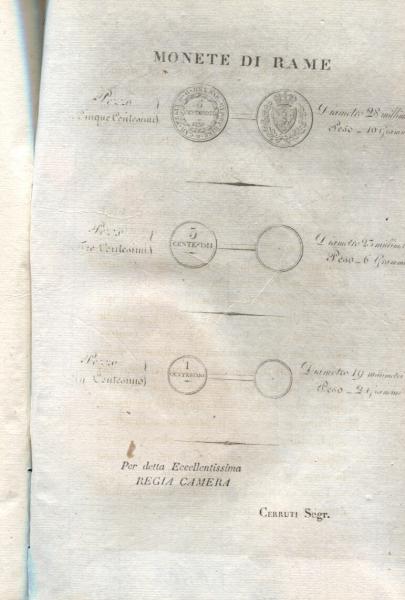 MONETE DI RAME
Pezzo
Cinque Centesimi
5
CENTESIMI
Diametro 28 millim
Peso - 10 Gramm
Pezzo
Centesimi
3
CENTESIMI
Diametro millim
Peso - 6 Gramm
Pezzo
Centesimo
1
CENTESIMO
Diametro 19 millimetr
Peso - 2 Gramm
Per detta Eccellentissima
REGIA CAMERA
CERRUTI Segr.